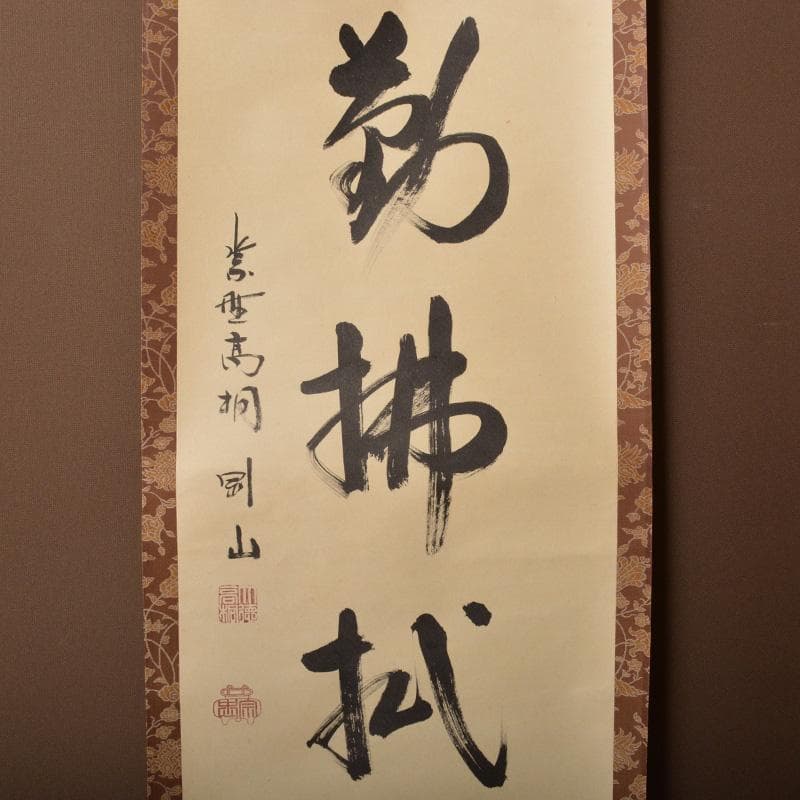 勤拂拭
紫野高桐剛山